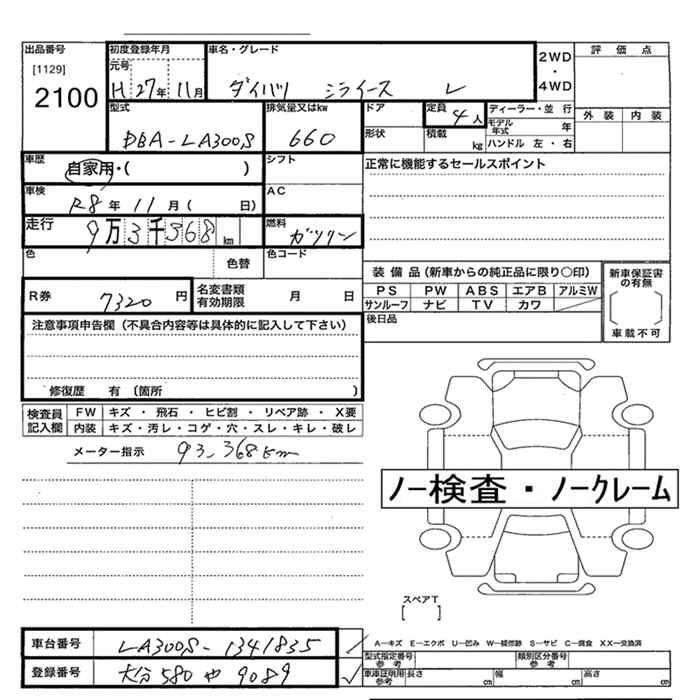 出品番号 初度登録年月 車名・グレード 2WD・4WD 評価点
[1129] 元号
2100 H 27年 11月 ダイハツ ミライース L
外装 内装
型式 排気量又はkw ドア 定員 4人 ディーラー・並行
DBA-LA300S 660 形状 積載 kg モデル年式 年
ハンドル 左・右
車歴 自家用・( ) シフト 正常に機能するセールスポイント
車検 R8年 11月( 日) AC
走行 9万3千368km 燃料 ガソリン
色 色替 色コード
装備品(新車からの純正品に限り〇印) 新車保証書の有無
PS PW ABS エアB アルミW
R券 7320円 名変書類有効期限 月 日 サンルーフ ナビ TV カワ
車載不可
注意事項申告欄(不具合内容等は具体的に記入して下さい) 後日品
修復歴 有 〔箇所 〕
検査員記入欄 FW キズ・飛石・ヒビ割・リペア跡・X要
内装 キズ・汚レ・コゲ・穴・スレ・キレ・破レ
メーター指示 93-368km
ノー検査・ノークレーム
スペアT
[ ]
A-キズ E-エクボ U-凹み W-補修跡 S-サビ C-腐食 XX-交換済
車台番号 LA300S-1341835 型式指定番号参考 類別区分番号参考
登録番号 大分580や9089 車庫証明用参考 長さ cm 幅 cm 高さ cm